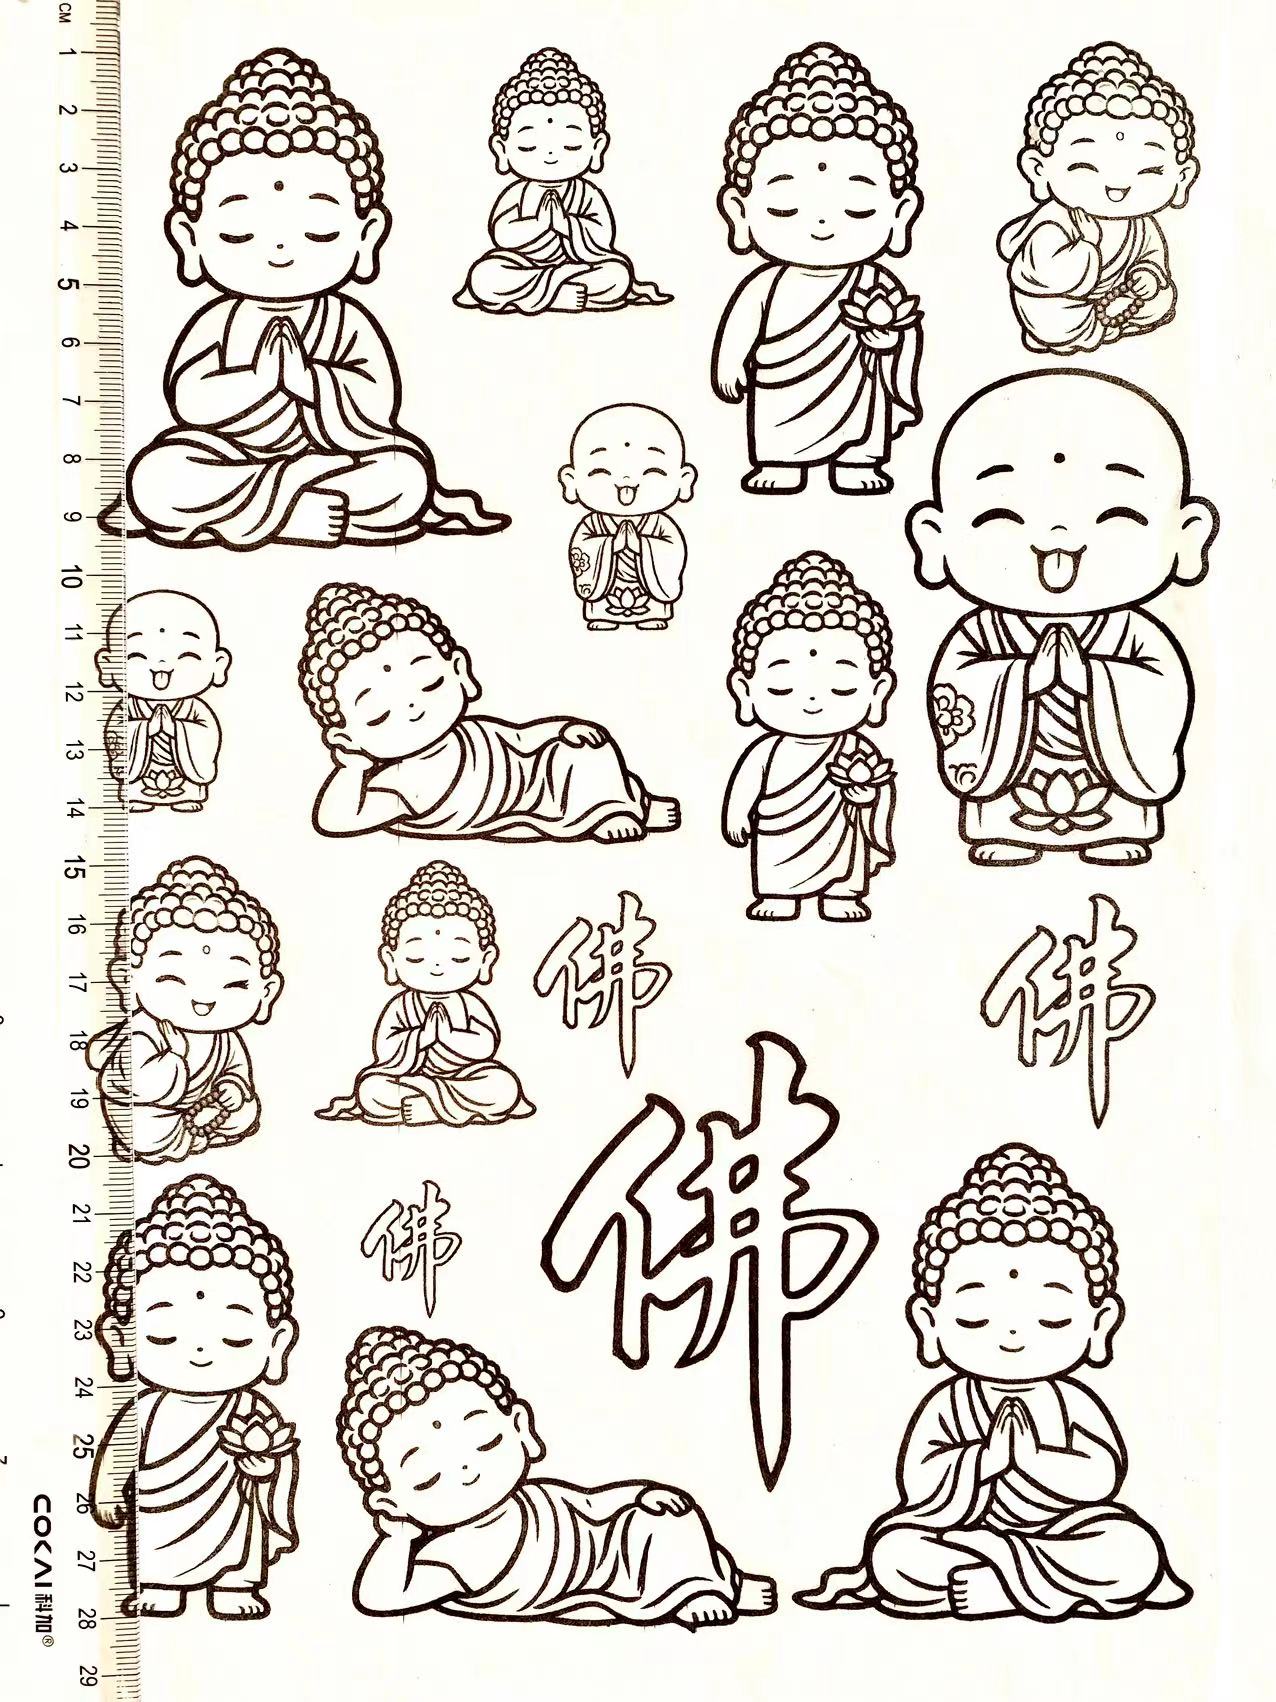 CM
1
2
3
4
5
6
7
8
9
10
11
12
13
14
15
16
17
18
19
20
21
22
23
24
25
26
27
28
29
COKAI科加®
佛
佛
佛
佛